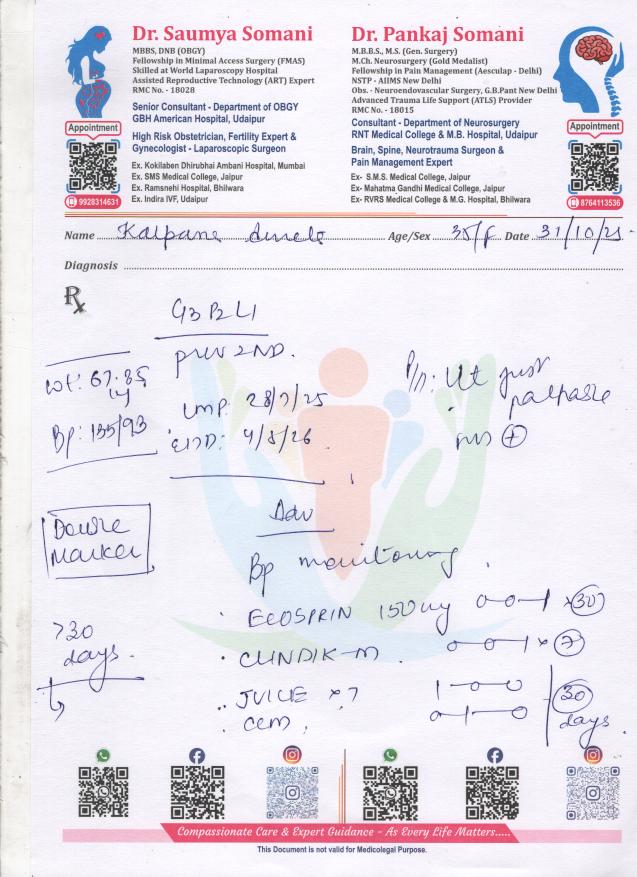 Dr. Saumya Somani
MBBS, DNB (OBGY)
Fellowship in Minimal Access Surgery (FMAS)
Skilled at World Laparoscopy Hospital
Assisted Reproductive Technology (ART) Expert
RMC No. - 18028
Senior Consultant - Department of OBGY
GBH American Hospital, Udaipur
High Risk Obstetrician, Fertility Expert &
Gynecologist - Laparoscopic Surgeon
Ex. Kokilaben Dhirubhai Ambani Hospital, Mumbai
Ex. SMS Medical College, Jaipur
Ex. Ramsnehi Hospital, Bhilwara
Ex. Indira IVF, Udaipur
Appointment
9928314631
Dr. Pankaj Somani
M.B.B.S., M.S. (Gen. Surgery)
M.Ch. Neurosurgery (Gold Medalist)
Fellowship in Pain Management (Aesculap - Delhi)
NSTP - AIIMS New Delhi
Obs. - Neuroendovascular Surgery, G.B.Pant New Delhi
Advanced Trauma Life Support (ATLS) Provider
RMC No. - 18015
Consultant - Department of Neurosurgery
RNT Medical College & M.B. Hospital, Udaipur
Brain, Spine, Neurotrauma Surgeon &
Pain Management Expert
Ex- S.M.S. Medical College, Jaipur
Ex- Mahatma Gandhi Medical College, Jaipur
Ex- RVRS Medical College & M.G. Hospital, Bhilwara
Appointment
8764113536
Name Kalpana Age/Sex 35/F Date 31/10/25
Diagnosis
Rx
G3P2L1
prev 2ND.
wt: 67.85
kg
LMP: 28/7/25
Bp: 135/93
EDD: 4/5/26
P/A: Ut just
palpable
Adv
Double
Marker
Bp monitoring
ECOSPRIN 150mg 0-0-1 x 30
>30
days
CLINDIK-M 0-0-1 x 7
1-0-0
0-1-0
30
days
Compassionate Care & Expert Guidance - As Every Life Matters.....
This Document is not valid for Medicolegal Purpose.